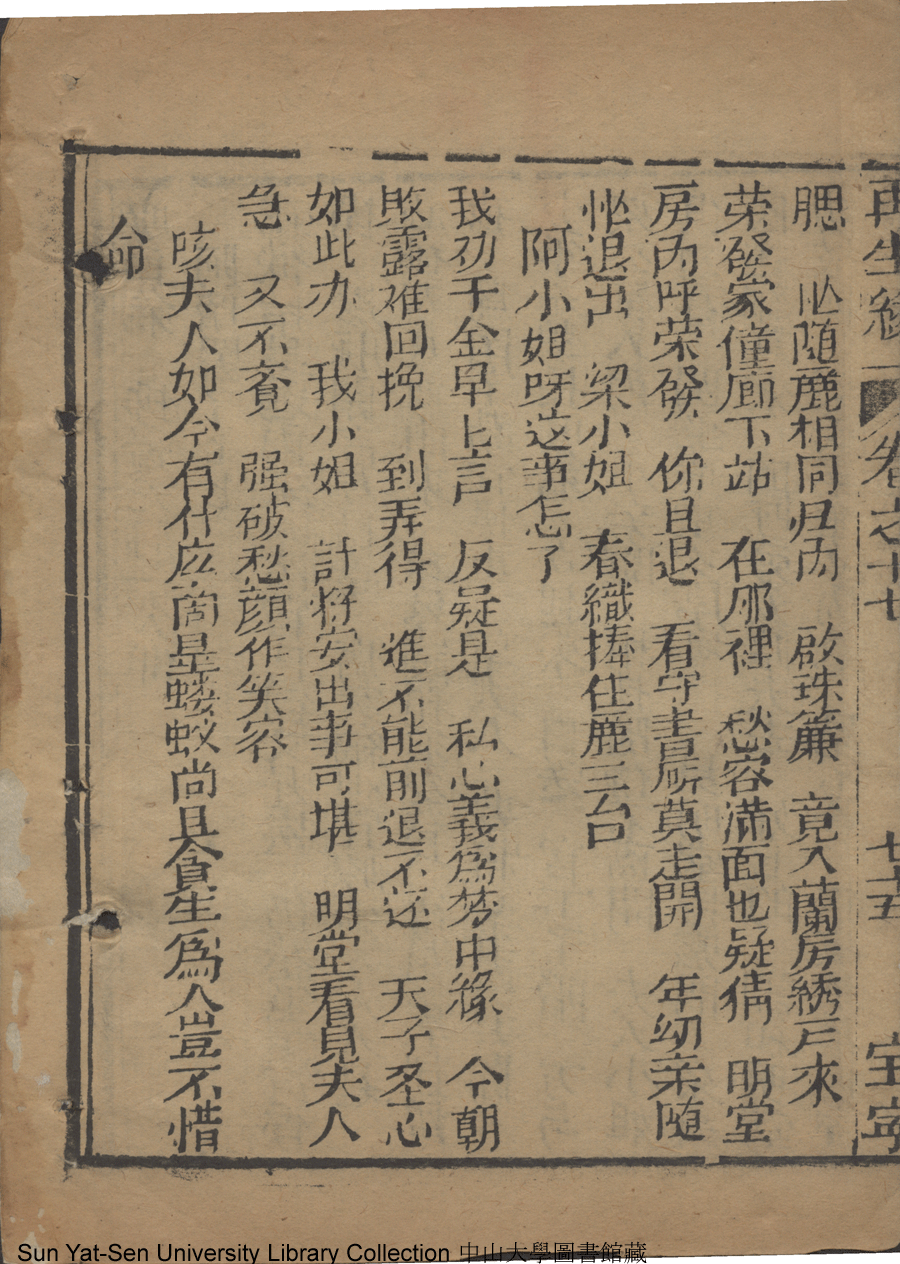 再生緣 卷之十七 七十五
腮 忙随麗相同归内 啟珠簾 竟入蘭房綉戶來
荣發家僮廊下站 在那裡 愁容滿面也疑猜 明堂
房内呼荣發 你且退 看守書房莫走開 年幼亲随
忙退出 梁小姐 春織捧住麗三台
阿小姐呀这事怎了
我劝千金早上言 反疑是 私心義為梦中緣 今朝
敗露难回挽 到弄得 進不能前退不还 天子圣心
如此办 我小姐 計将安出事可堪 明堂看見夫人
急 又不覓 强破愁顔作笑容
咳夫人如今有什应商量蝼蚁尚且貪生為人豈不惜
命
Sun Yat-Sen University Library Collection 中山大學圖書館藏